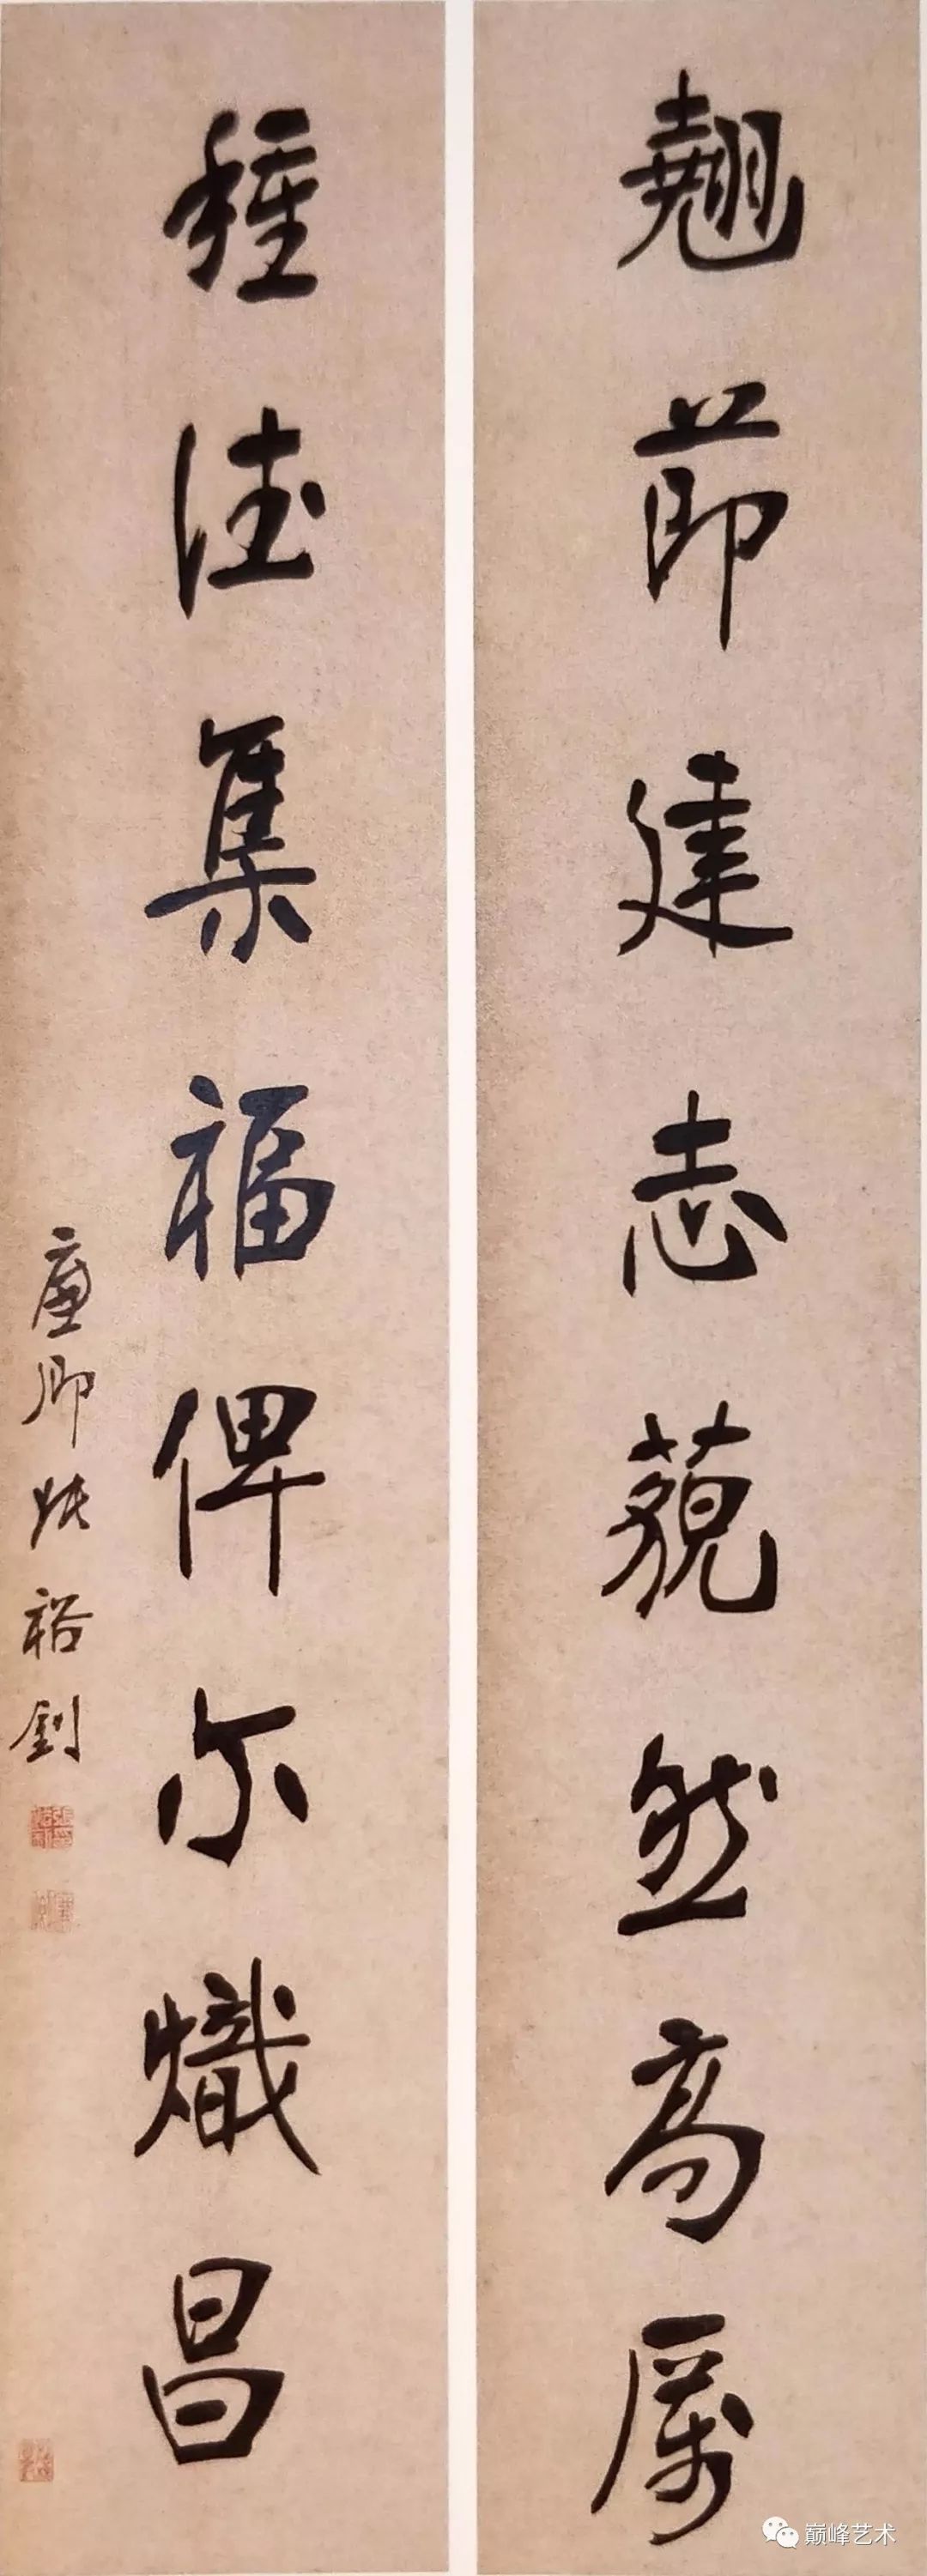 翹節建志藐然高厲
種德集福俾尔熾昌
廉卿張裕釗
巅峰艺术